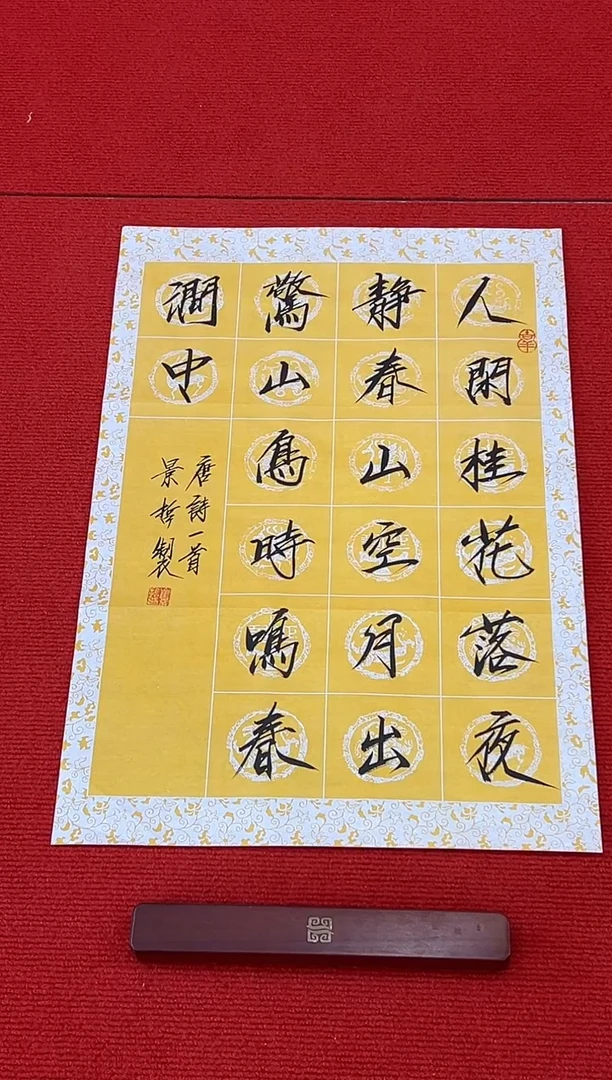 人閑桂花落夜
静春山空月出
驚山鳥時鳴春
澗中
唐詩一首
景 製